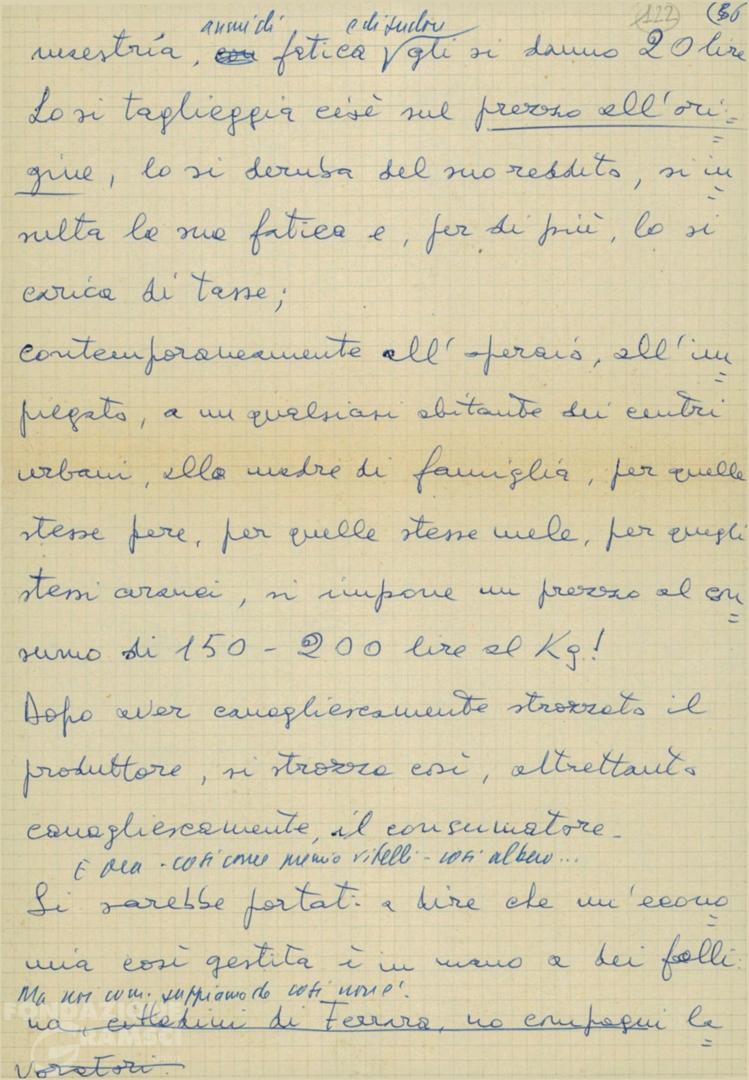 122 36
anni di e di sudore
maestria, con fatica gli si danno 20 lire
Lo si taglieggia cioè sul prezzo all'ori=
gine, lo si deruba del suo reddito, si in=
sulta la sua fatica e, per di più, lo si
carica di tasse;
contemporaneamente all'operaio, all'im=
piegato, a un qualsiasi abitante dei centri
urbani, alla madre di famiglia, per quelle
stesse pere, per quelle stesse mele, per quegli
stessi aranci, si impone un prezzo al con=
sumo di 150 - 200 lire al Kg!
Dopo aver canagliescamente strozzato il
produttore, si strozza così, altrettanto
canagliescamente, il consumatore -
E ora - così come premio vitelli - così albero...
Si sarebbe portati a dire che un'econo=
mia così gestita è in mano a dei folli:
Ma noi com. sappiamo che così non è!
no, cittadini di Ferrara, no compagni la=
voratori.
FONDAZIONE
GRAMSCI